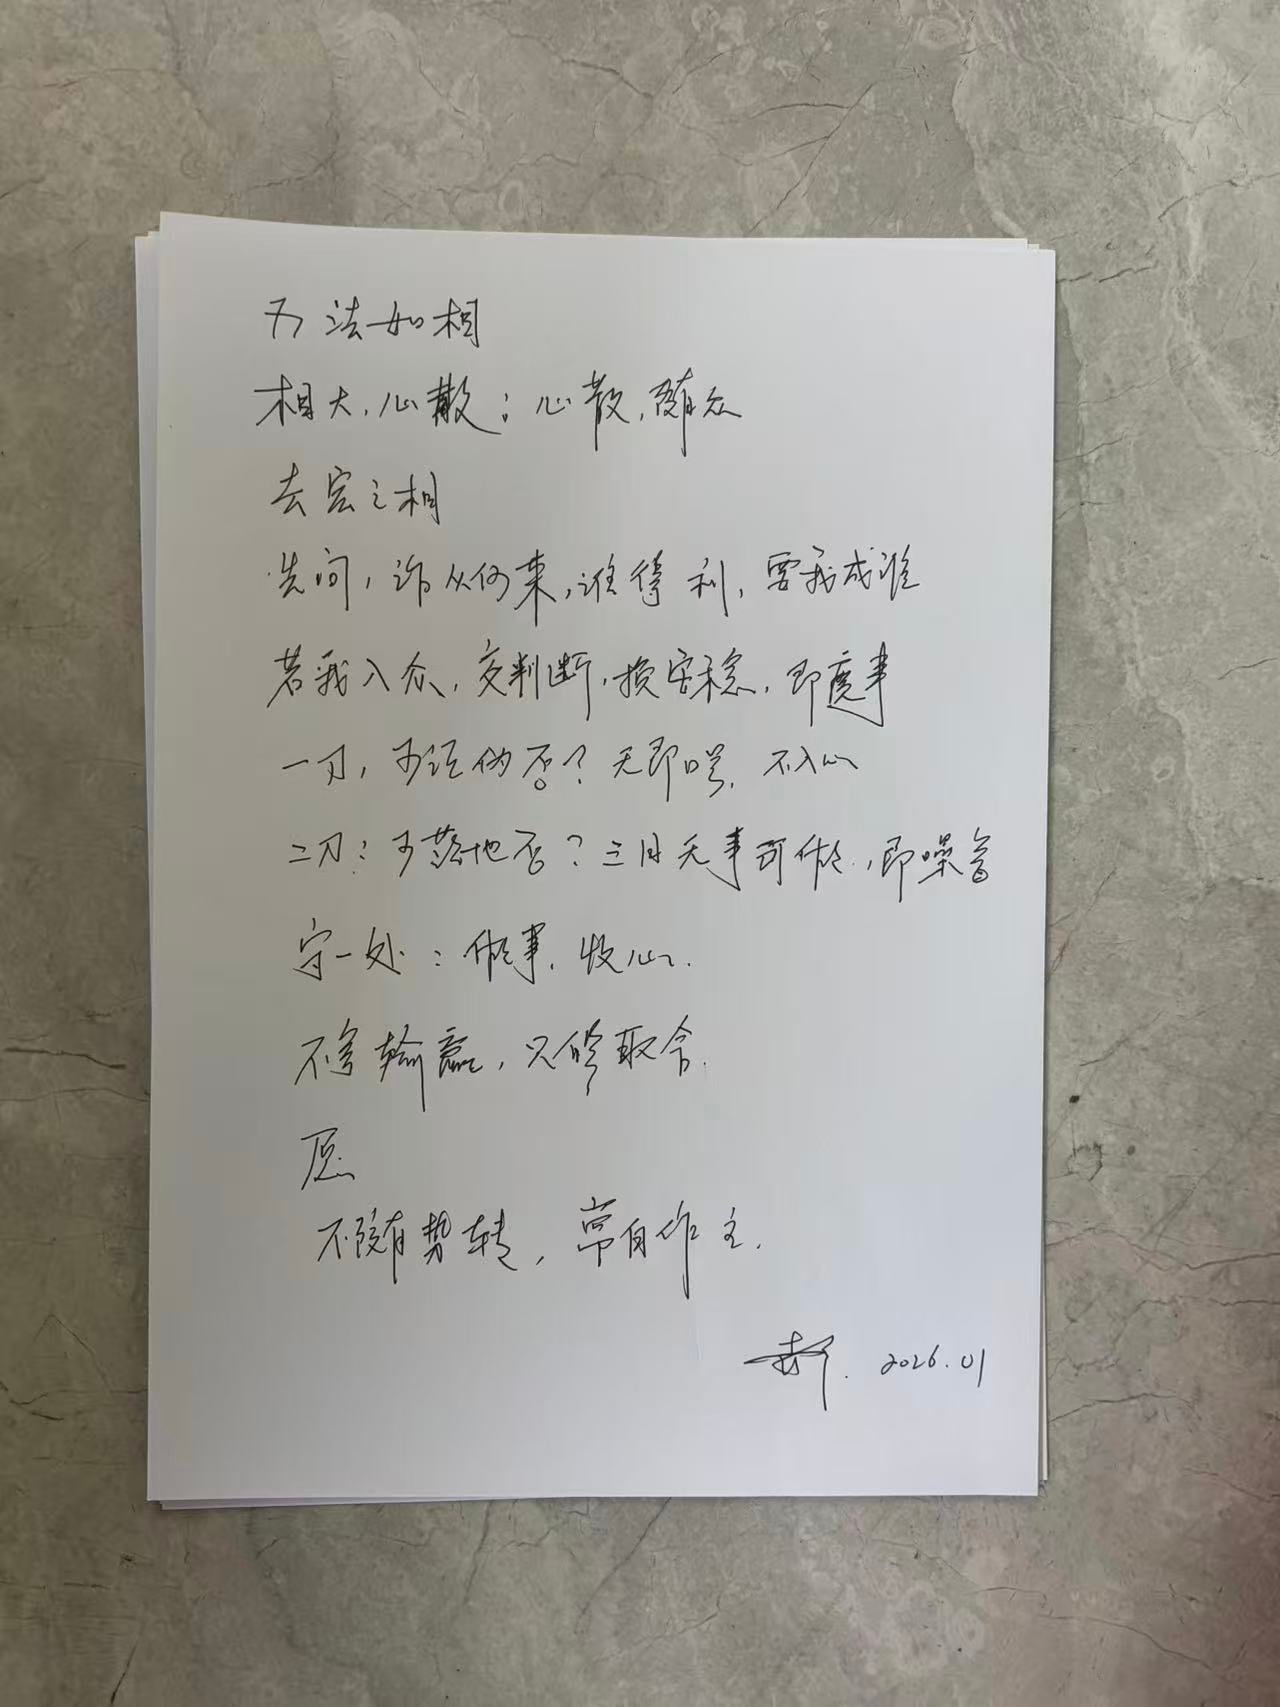 万法如相
相大,心散;心散,随众
去宏之相
先问,诈从何来,谁得利,要我成谁
若我入众,交判断,换安稳,即废事
一刀,可证伪否?无即哭,不入心
二刀:可落地否?三日无事可做,即噪音
守一处:做事,收心.
不争输赢,只修取舍.
愿
不随势转,常自作主.
2026.01